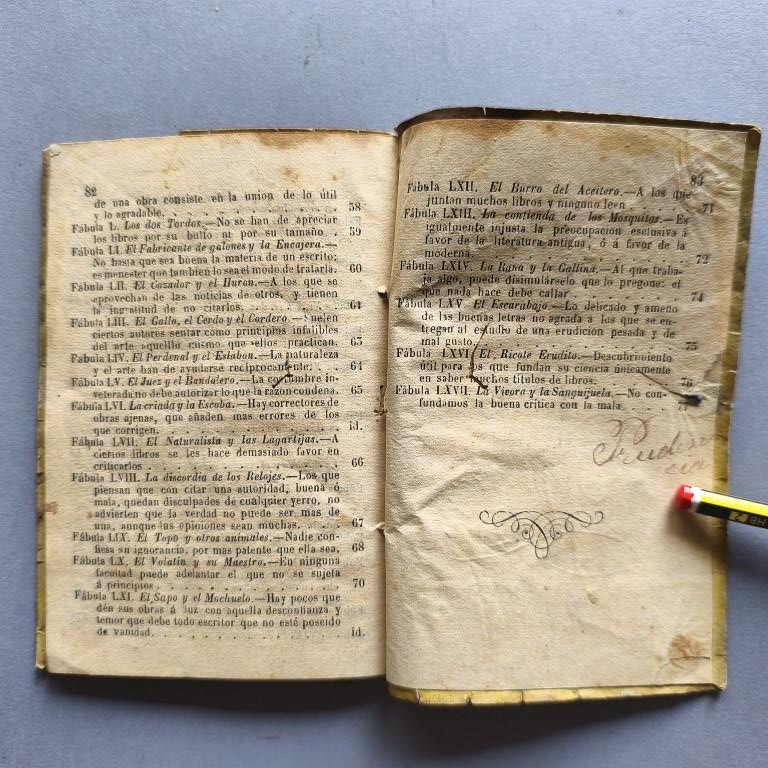 82
de una obra consiste en la union de lo útil
y lo agradable. . . . . . . . . . . . 58
Fábula L. Los dos Tordos.—No se han de apreciar
los libros por su bulto ni por su tamaño . 59
Fábula LI. El Fabricante de galones y la Encajera.—
No basta que sea buena la materia de un escrito;
es menester que tambien lo sea el modo de tratarla. 60
Fábula LII. El Cazador y el Huron.—A los que se
aprovechan de las noticias de otros, y tienen
la ingratitud de no citarlos. . . . . . 61
Fábula LIII. El Gallo, el Cerdo y el Cordero.—Suelen
ciertos autores sentar como principios infalibles
del arte aquello mismo que ellos practican. 63
Fábula LIV. El Pedernal y el Eslabon.—La naturaleza
y el arte han de ayudarse reciprocamente. . 64
Fábula LV. El Juez y el Bandolero.—La costumbre in-
veterada no debe autorizar lo que la razon condena. 65
Fábula LVI. La criada y la Escoba.—Hay correctores de
obras ajenas, que añaden mas errores de los
que corrigen. . . . . . . . . . . id.
Fábula LVII. El Naturalista y las Lagartijas.—A
ciertos libros se les hace demasiado favor en
criticarlos . . . . . . . . . . . 66
Fábula LVIII. La discordia de los Relojes.—Los que
piensan que con citar una autoridad, buena ó
mala, quedan disculpados de cualquier yerro, no
advierten que la verdad no puede ser mas de
una, aunque las opiniones sean muchas. . . 67
Fábula LIX. El Topo y otros animales.—Nadie con-
fiesa su ignorancia, por mas patente que ella sea. 68
Fábula LX. El Volatin y su Maestro.—En ninguna
facultad puede adelantar el que no se sujeta
á principios . . . . . . . . . . . 70
Fábula LXI. El Sapo y el Mochuelo.—Hay pocos que
dén sus obras á luz con aquella desconfianza y
temor que debe todo escritor que no esté poseido
de vanidad. . . . . . . . . . . . id.
83
Fábula LXII. El Burro del Aceitero.—A los que
juntan muchos libros y ninguno leen . . . 71
Fábula LXIII. La contienda de los Mosquitos.—Es
igualmente injusta la preocupacion esclusiva á
favor de la literatura antigua, ó á favor de la
moderna. . . . . . . . . . . . . 72
Fábula LXIV. La Rana y la Gallina.—Al que traba-
ja algo, puede disimulársele que lo pregone: el
que nada hace debe callar . . . . . . 74
Fábula LXV. El Escarabajo.—Lo delicado y ameno
de las buenas letras no agrada á los que se en-
tregan al estudio de una erudicion pesada y de
mal gusto. . . . . . . . . . . . 75
Fábula LXVI. El Ricote Erudito.—Descubrimiento
útil para los que fundan su ciencia únicamente
en saber muchos titulos de libros. . . . . 76
Fábula LXVII. La Vivora y la Sanguijuela.—No con-
fundamos la buena crítica con la mala. . .
Pruden
cia
HB